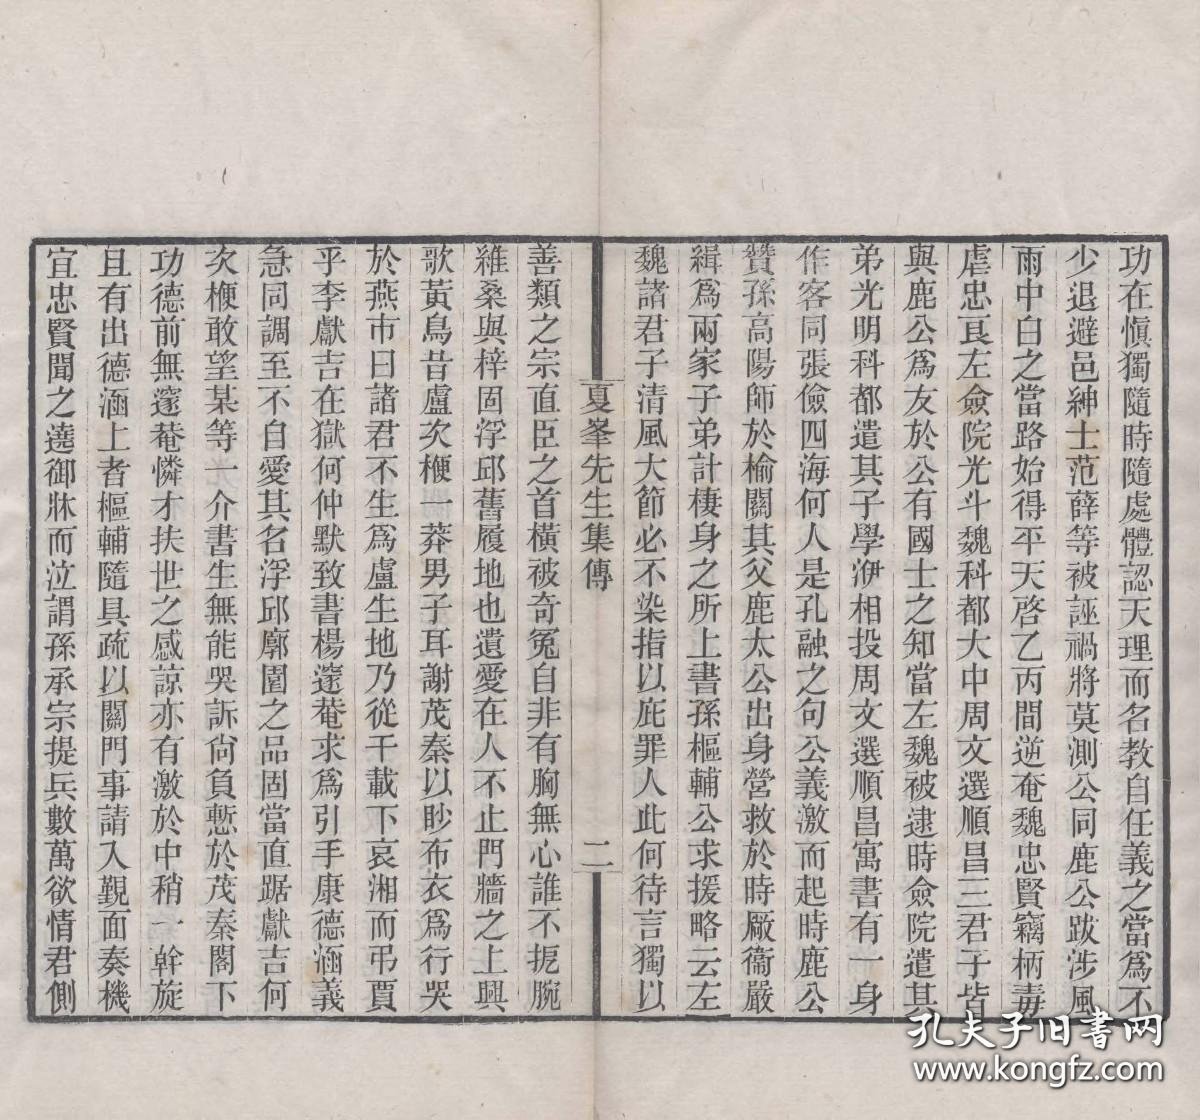 功在愼獨隨時隨處體認天理而名教自任義之當爲不
少退避邑紳士范薛等被誣禍將莫測公同鹿公跋涉風
雨中白之當路始得平天啓乙丙間逆奄魏忠賢竊柄毒
虐忠良左僉院光斗魏科都大中周文選順昌三君子皆
與鹿公爲友於公有國士之知當左魏被逮時僉院遣其
弟光明科都遣其子學洢相投周文選順昌寓書有一身
作客同張儉四海何人是孔融之句公義激而起時鹿公
贊孫高陽師於榆關其父鹿太公出身營救於時厰衞嚴
緝爲兩家子弟計棲身之所上書孫樞輔公求援略云左
魏諸君子清風大節必不染指以庇罪人此何待言獨以
夏峯先生集傳 二
善類之宗直臣之首橫被奇冤自非有胸無心誰不扼腕
維桑與梓固浮邱舊履地也遺愛在人不止門牆之上興
歌黃鳥昔盧次楩一莽男子耳謝茂秦以眇布衣爲行哭
於燕市曰諸君不生爲盧生地乃從千載下哀湘而弔賈
乎李獻吉在獄何仲默致書楊邃菴求爲引手康德涵義
急同調至不自愛其名浮邱廓園之品固當直踞獻吉何
次楩敢望某等一介書生無能哭訴尙負慙於茂秦閣下
功德前無邃菴憐才扶世之感諒亦有激於中稍一斡旋
且有出德涵上者樞輔隨具疏以關門事請入覲面奏機
宜忠賢聞之遶御牀而泣謂孫承宗提兵數萬欲情君側
孔夫子旧书网
www.kongfz.com